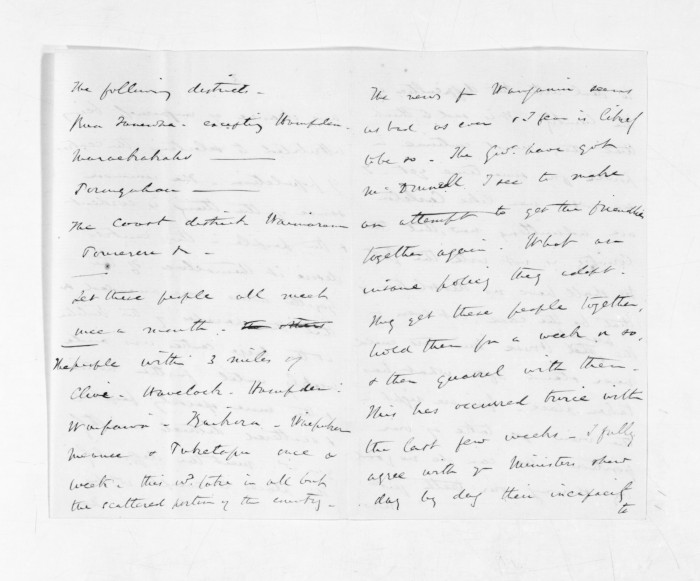 The following districts -
Rua Taniwha - excepting Hampden -
Maraekakaho ———
Porangahau ———
The Coast district Wainarara
Pourerere &c -
Let these people all meet
once a month - the others
The people within 3 miles of
Clive - Havelock - Hampden -
Waipawa - Kaikora - Waipukurau
Meanee & Puketapu once a
week - this wd. take in all but
the scattered portion of the country -
The news fm Wanganui seems
as bad as ever & I fear is likely
to be so - The Govt. have got
McDonnell I see to make
an attempt to get the friendlies
together again. What an
insane policy they adopt.
They get these people together,
hold them for a week or so,
& then quarrel with them -
This has occurred twice with
the last few weeks - I fully
agree with yr Ministers show
day by day their incapacity
to